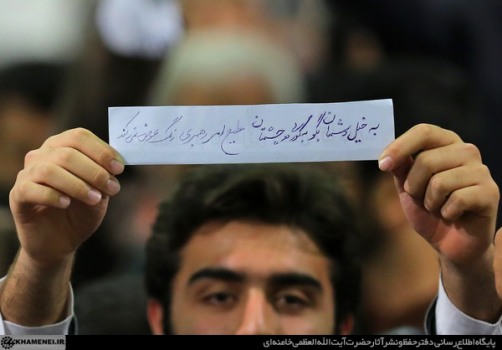 به خیل دشمنان بگو چشمتان مطیع امر رهبری
KHAMENEI.IR
پایگاه اطلاع رسانی دفتر حفظ و نشر آثار حضرت آیت الله العظمی خامنه ای